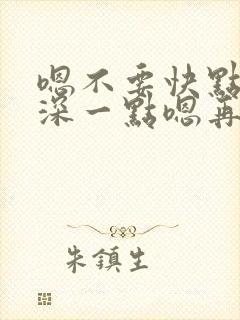 嗯不要快點
深一點嗯再
朱鎮生